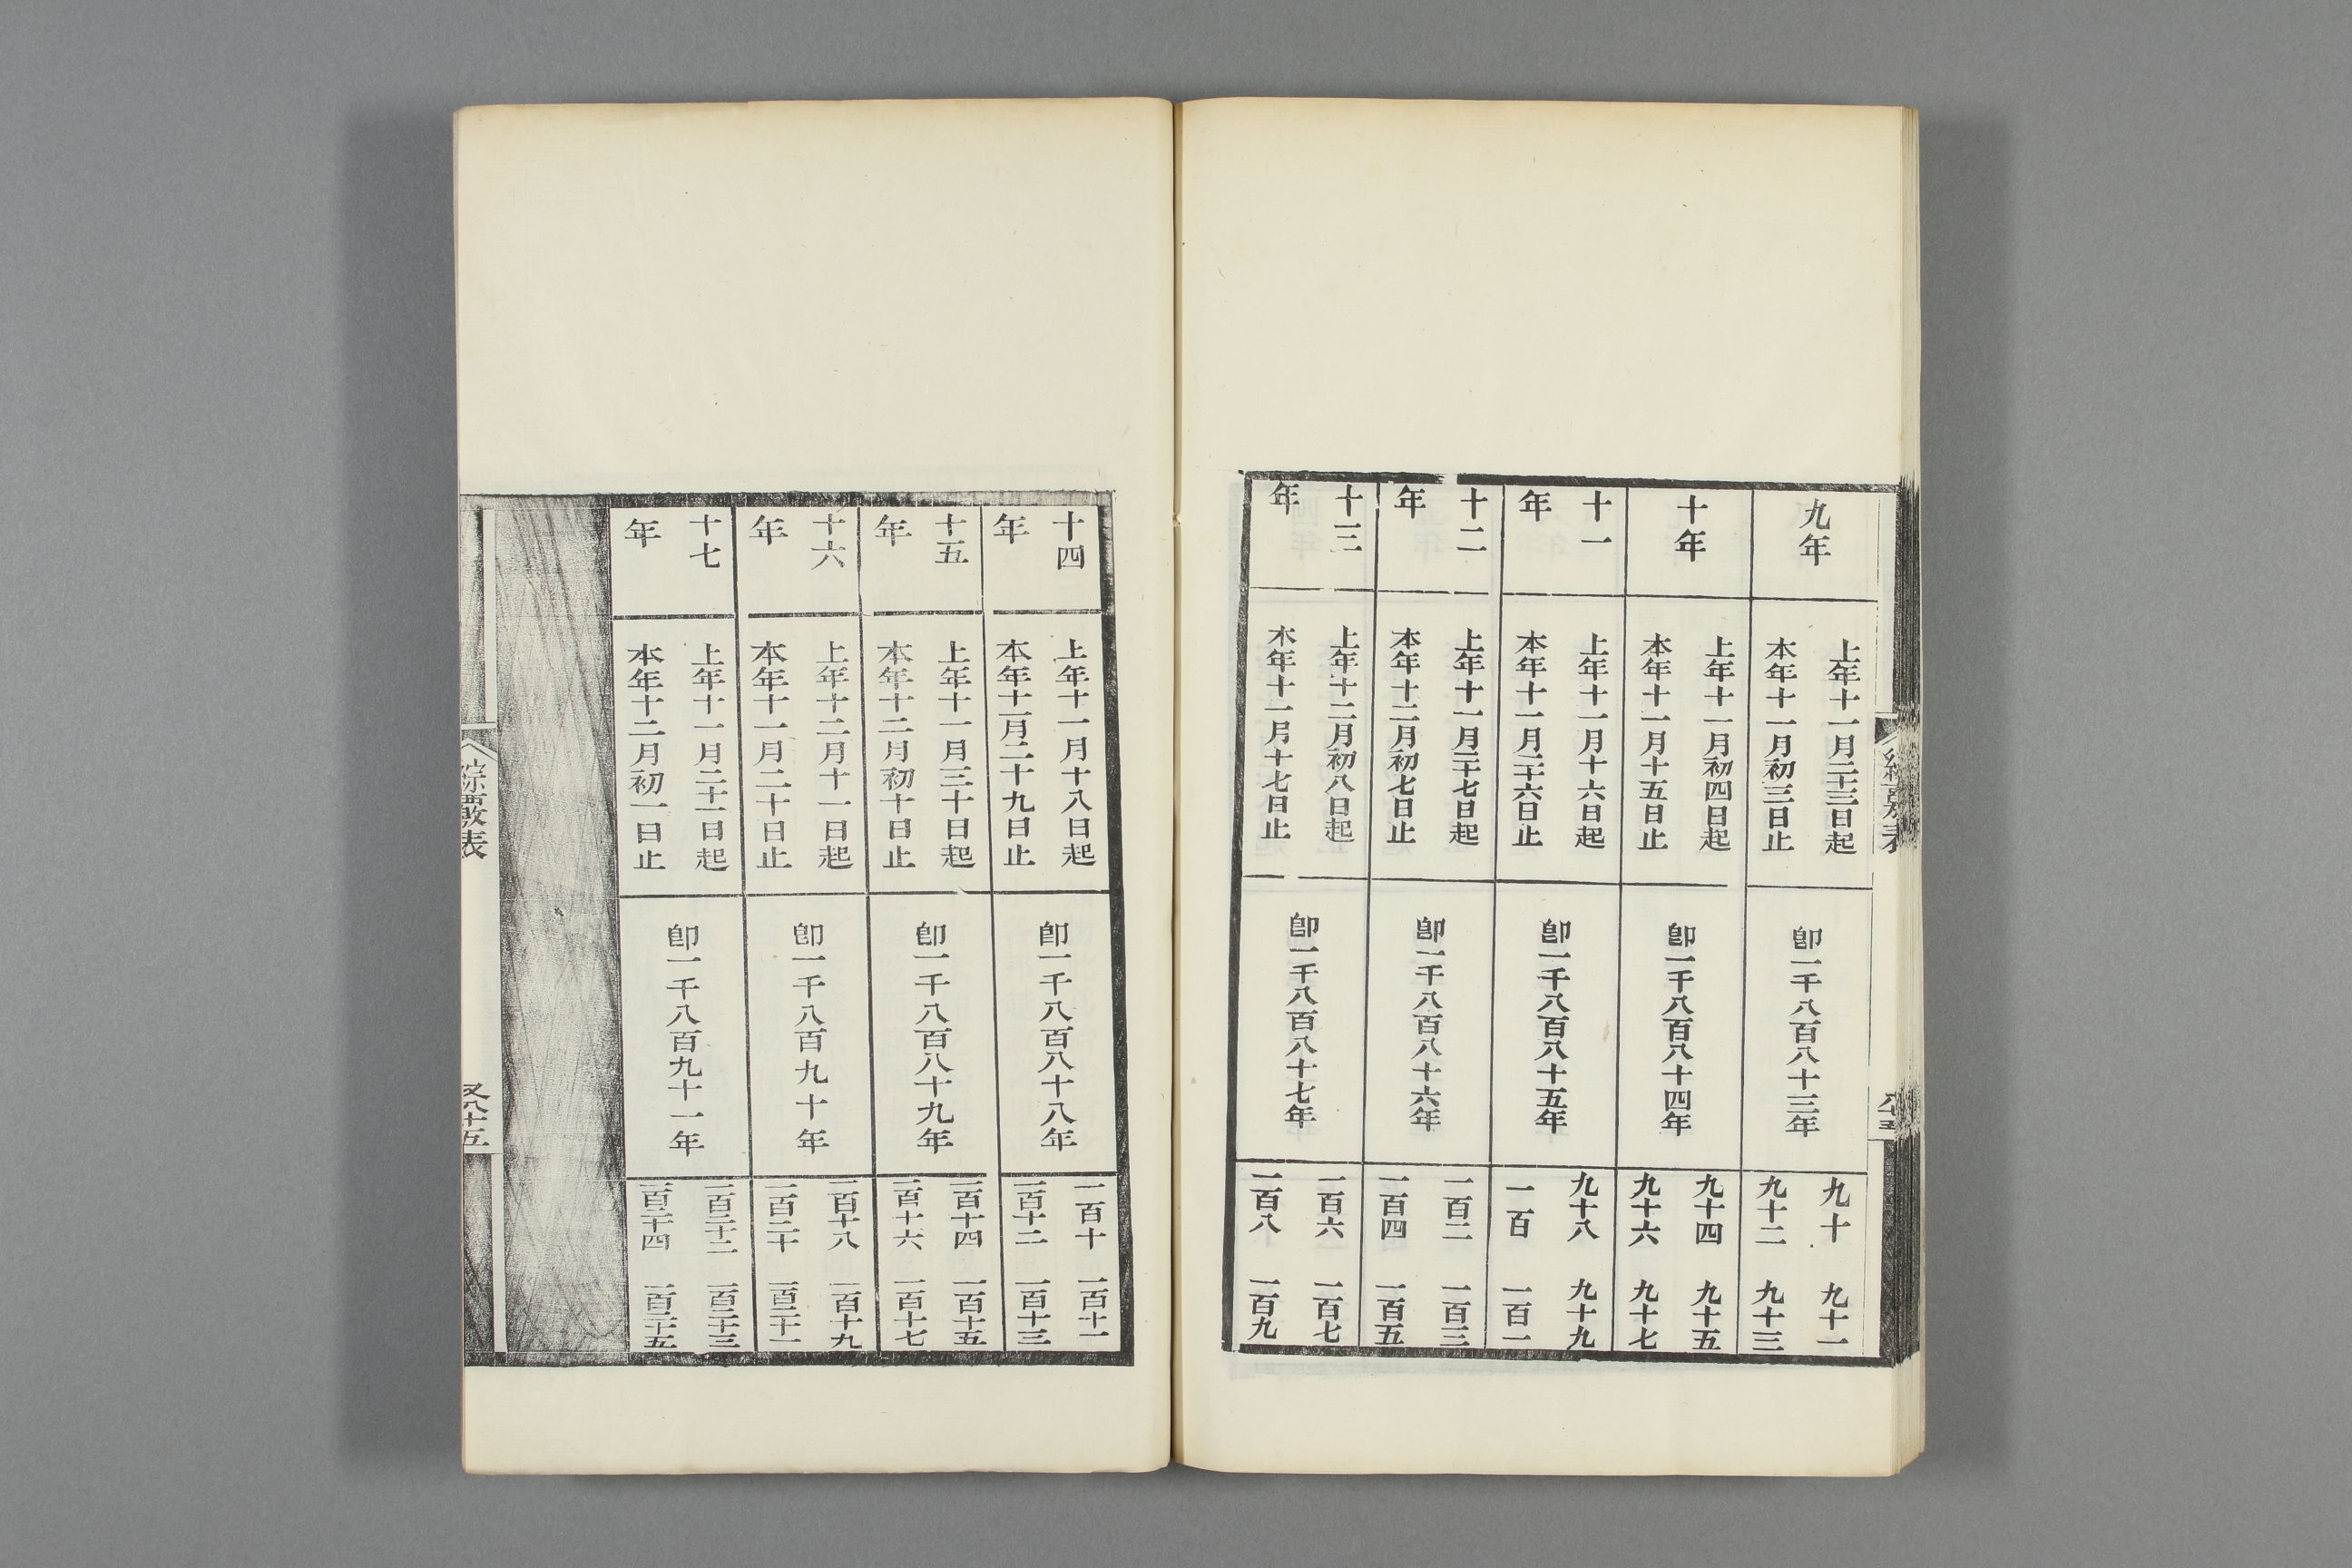 九年
上年十一月二十三日起
本年十一月初三日止
卽一千八百八十三年
九十 九十一
九十二 九十三
十年
上年十一月初四日起
本年十一月十五日止
卽一千八百八十四年
九十四 九十五
九十六 九十七
十一
年
上年十一月十六日起
本年十一月二十六日止
卽一千八百八十五年
九十八 九十九
一百 一百一
十二
年
上年十一月二十七日起
本年十二月初七日止
卽一千八百八十六年
一百二 一百三
一百四 一百五
十三
年
上年十二月初八日起
本年十一月十七日止
卽一千八百八十七年
一百六 一百七
一百八 一百九
十四
年
上年十一月十八日起
本年十一月二十九日止
卽一千八百八十八年
一百十 一百十一
一百十二 一百十三
十五
年
上年十一月三十日起
本年十二月初十日止
卽一千八百八十九年
一百十四 一百十五
一百十六 一百十七
十六
年
上年十二月十一日起
本年十一月二十日止
卽一千八百九十年
一百十八 一百十九
一百二十 一百二十一
十七
年
上年十一月二十一日起
本年十二月初一日止
卽一千八百九十一年
一百二十二 一百二十三
一百二十四 一百二十五
綜覈表
又八十五